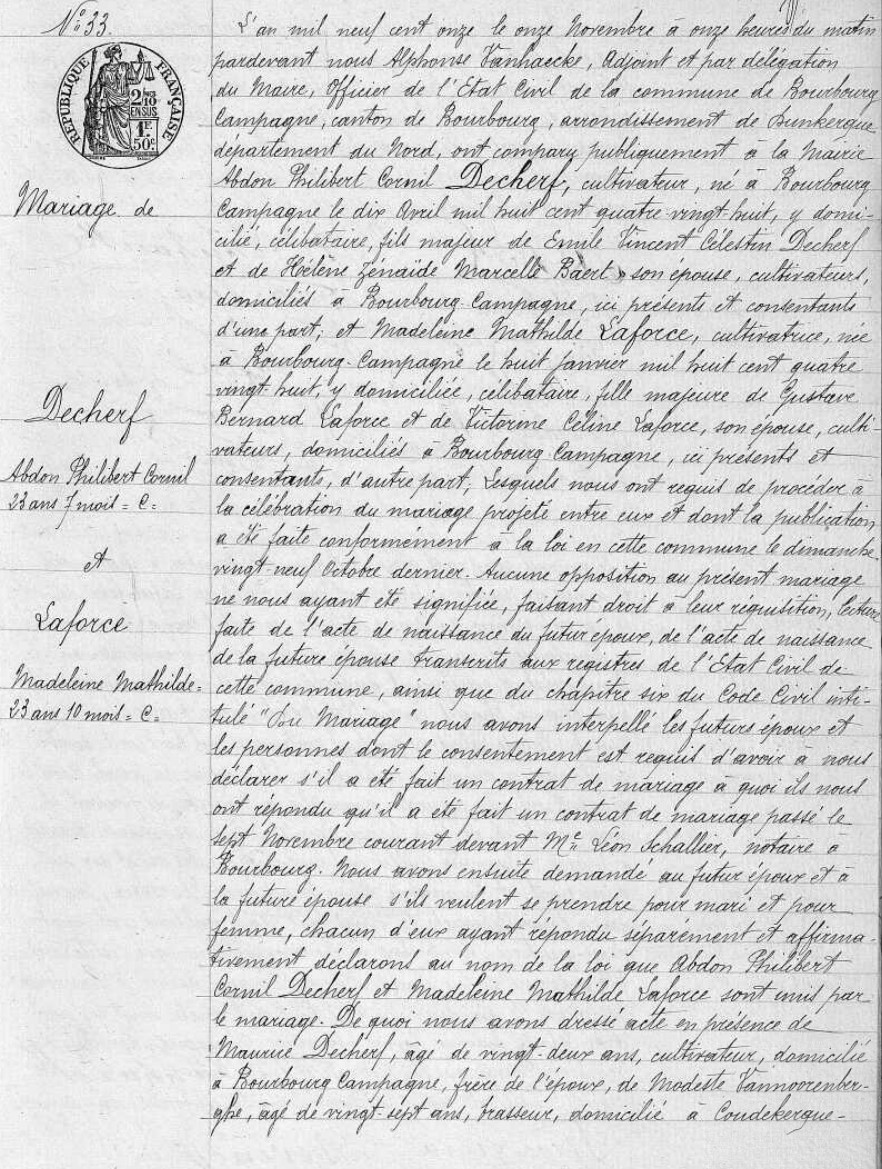 N° 33.
RÉPUBLIQUE FRANÇAISE
2/10
EN SUS
1F
50c
Mariage de
Decherf
Abdon Philibert Cornil
23 ans 7 mois = C =
et
Laforce
Madeleine Mathilde =
23 ans 10 mois = C =
L'an mil neuf cent onze le onze Novembre à onze heures du matin
pardevant nous Alphonse Vanhaecke, Adjoint et par délégation
du Maire, Officier de l'Etat Civil de la commune de Bourbourg
Campagne, canton de Bourbourg, arrondissement de Dunkerque
département du Nord, ont comparu publiquement à la Mairie
Abdon Philibert Cornil Decherf, cultivateur, né à Bourbourg
Campagne le dix Avril mil huit cent quatre-vingt-huit, y domi-
cilié, célibataire, fils majeur de Emile Vincent Célestin Decherf
et de Hélène Zénaïde Marcelle Baert son épouse, cultivateurs,
domiciliés à Bourbourg-Campagne, ici présents et consentants
d'une part; et Madeleine Mathilde Laforce, cultivatrice, née
à Bourbourg-Campagne le huit Janvier mil huit cent quatre
vingt-huit, y domiciliée, célibataire, fille majeure de Gustave
Bernard Laforce et de Victorine Céline Laforce, son épouse, culti-
vateurs, domiciliés à Bourbourg-Campagne, ici présents et
consentants, d'autre part; Lesquels nous ont requis de procéder à
la célébration du mariage projeté entre eux et dont la publication
a été faite conformément à la loi en cette commune le dimanche
vingt-neuf Octobre dernier. Aucune opposition au présent mariage
ne nous ayant été signifiée, faisant droit à leur réquisition, lecture
faite de l'acte de naissance du futur époux, de l'acte de naissance
de la future épouse transcrits aux registres de l'Etat Civil de
cette commune, ainsi que du chapitre six du Code Civil inti-
tulé "Du Mariage" nous avons interpellé les futurs époux et
les personnes dont le consentement est requis d'avoir à nous
déclarer s'il a été fait un contrat de mariage à quoi ils nous
ont répondu qu'il a été fait un contrat de mariage passé le
sept Novembre courant devant Me Léon Schallier, notaire à
Bourbourg. Nous avons ensuite demandé au futur époux et à
la future épouse s'ils veulent se prendre pour mari et pour
femme, chacun d'eux ayant répondu séparément et affirma-
tivement, déclarons au nom de la loi que Abdon Philibert
Cornil Decherf et Madeleine Mathilde Laforce sont unis par
le mariage. De quoi nous avons dressé acte en présence de
Maurice Decherf, âgé de vingt-deux ans, cultivateur, domicilié
à Bourbourg Campagne, frère de l'époux, de Modeste Vannoorenber-
ghe, âgé de vingt-sept ans, brasseur, domicilié à Coudekerque-